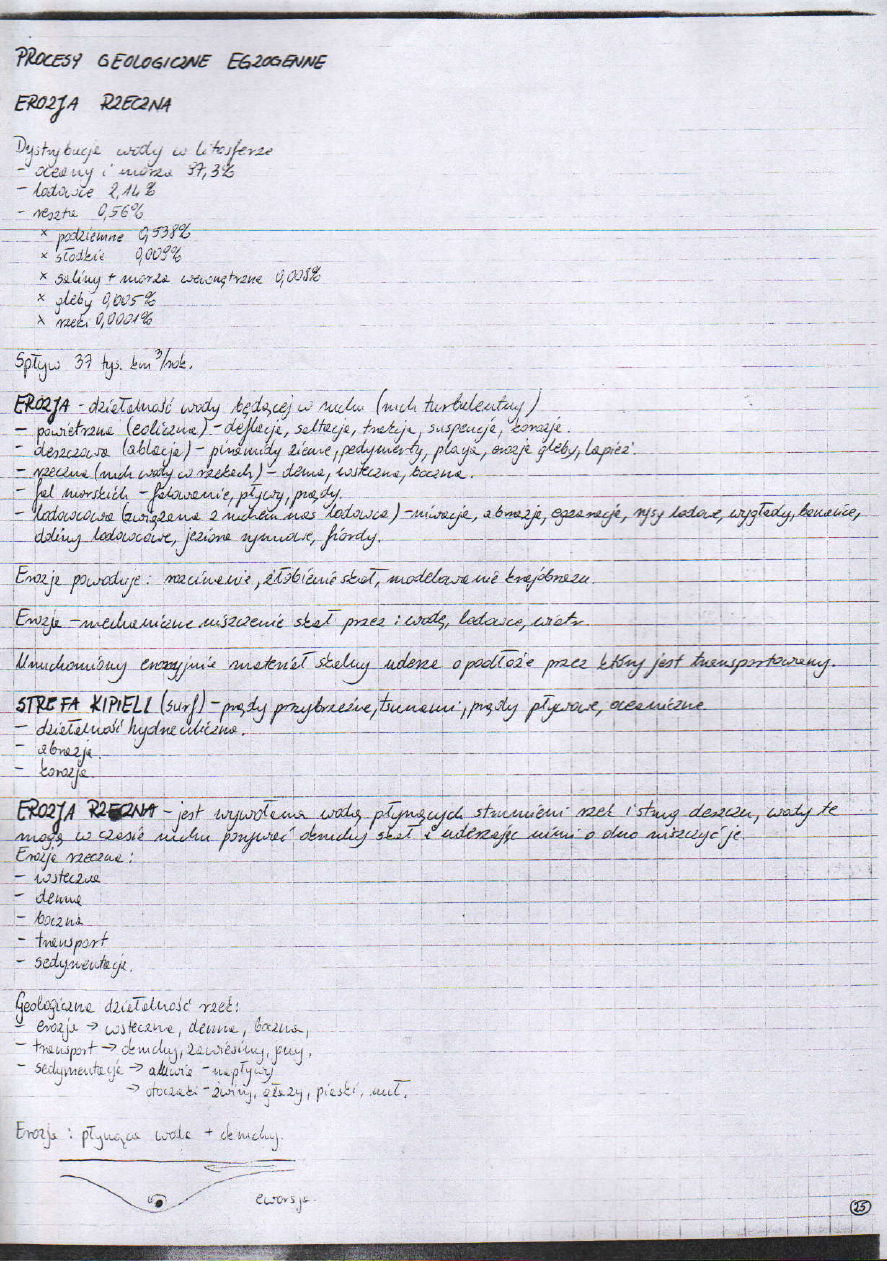 PROCESY GEOLOGICZNE EGZOGENNE
EROZJA RZECZNA
Dystrybucja wody w litosferze
- oceany i morza 97,3%
- lodowce 2,14%
- reszta 0,56%
x podziemne 0,538%
x słodkie 0,009%
x saliny + morza wewnątrzne 0,008%
x gleby 0,005%
x rzeki 0,0001%
Spływ 37 tys. km³/rok.
EROZJA - działalność wody będącej w ruchu (ruch turbulentny)
- powietrzna (eoliczna) - deflacja, saltacja, trakcja, suspencja, korazja.
- deszczowa (ablacja) - piramidy ziemne, pedymenty, playa, erozja gleby, lapiez.
- rzeczna (ruch wody w rzekach) - denna, wsteczna, boczna.
- fal morskich - falowanie, pływy, prądy.
- lodowcowa (związana z ruchem mas lodowca) - niwacja, abrazja, egzaracja, rysy lodowe, wygłady, barańce,
doliny lodowcowe, jeziora rynnowe, fiordy.
Erozja powoduje: rozcinanie, żłobienie skał, modelowanie krajobrazu.
Erozja - mechaniczne niszczenie skał przez: wodę, lodowce, wiatr.
Uruchomiony erozyjnie materiał skalny uderza o podłoże przez który jest transportowany.
STREFA KIPIELI (surf) - prądy przybrzeżne, tsunami, prądy pływowe, oceaniczne.
- działalność hydrauliczna.
- abrazja.
- korozja
EROZJA RZECZNA - jest wywołana wodą płynących strumieni rzek i strug deszczu, wody te
mogą w czasie ruchu porywać okruchy skał i uderzając nimi o dno niszczyć je.
Erozja rzeczna:
- wsteczna
- denna
- boczna
- transport
- sedymentacja.
Geologiczna działalność rzek:
- erozja → wsteczna, denna, boczna,
- transport → okruchy, zawiesiny, jony,
- sedymentacja → aluwia - napływy
→ otoczaki - żwiry, głazy, piaski, muł.
Erozja: płynąca woda + okruchy.
eworsja.
25